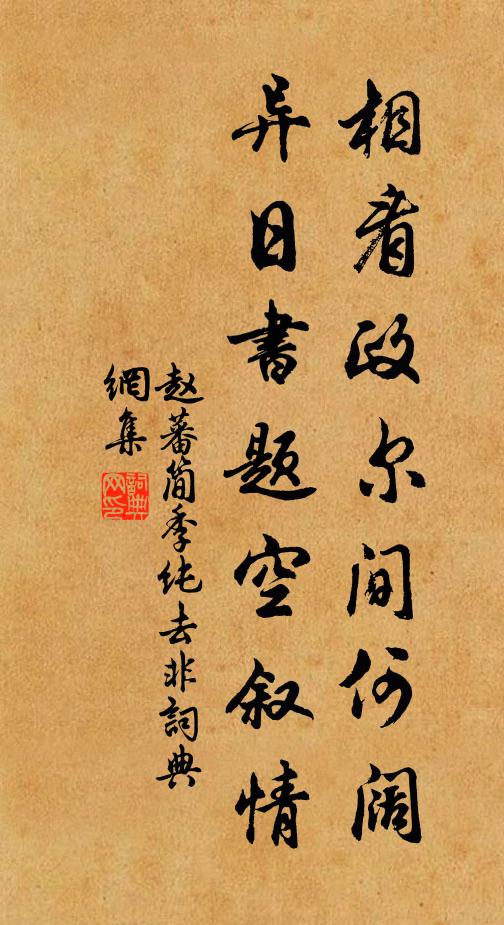 相看政尔间何阔
异日書题空叙情
赵蕃简季纯去非詞典
網集
詞典
网印